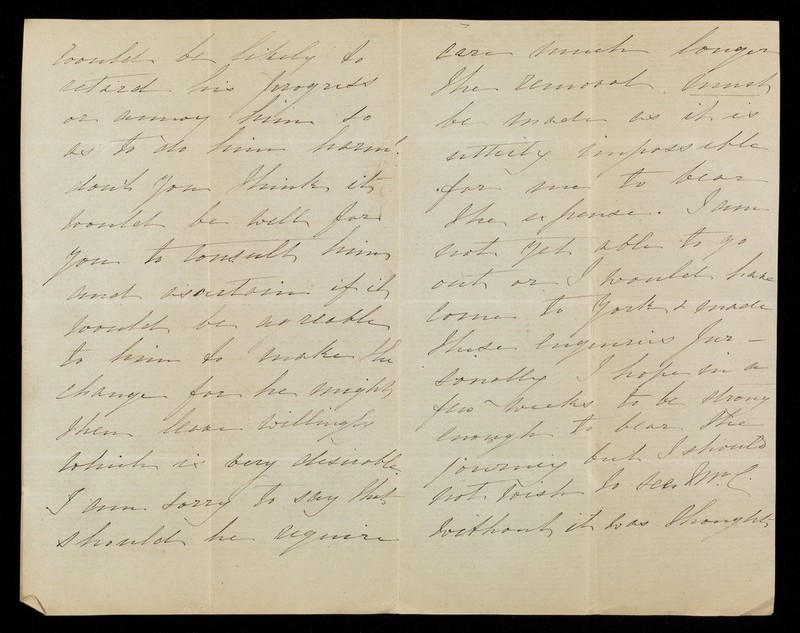 would be likely to
retard his progress
or annoy him so
as to do him harm.
don't you think it
would be well for
you to consult him
and ascertain if it
would be agreable
to him to make the
change for he might
then leave willingly
which is very desirable.
I am sorry to say that
should he require
care much longer
the removal must
be made as it is
utterly impossible
for me to bear
the expense. I am
not yet able to go
out or I would have
come to York & made
these enquiries per-
sonally I hope in a
few weeks to be strong
enough to bear the
journey but I should
not wish to see Mr. C.
without it was thought